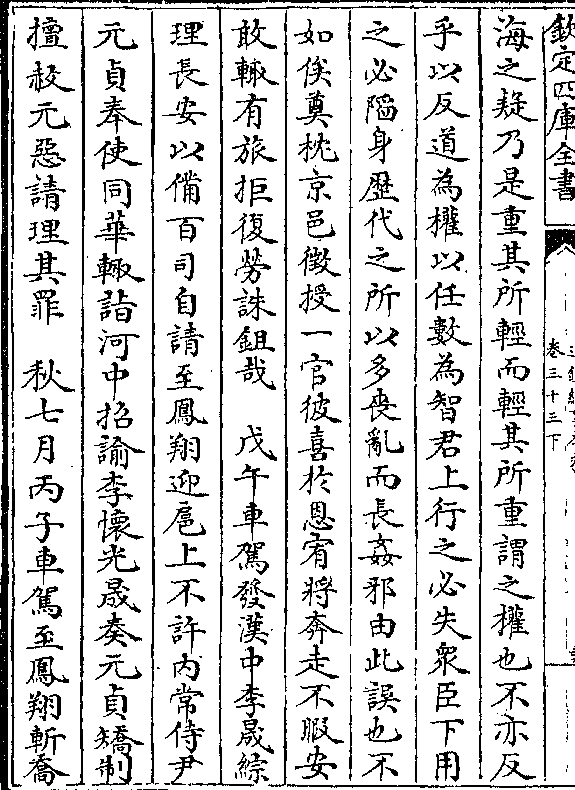 欽定四庫全書
卷三十三下
海之疑乃是重其所輕而輕其所重謂之權也不亦反
乎以反道為權以任數為智君上行之必失衆臣下用
之必陷身歴代之所以多喪亂而長姦邪由此誤也不
如俟奠枕京邑徵授一官彼喜於恩宥將奔走不暇安
敢輙有旅拒復勞誅鉏哉　戊午車駕發漢中李晟綜
理長安以備百司自請至鳳翔迎扈上不許内常侍尹
元貞奉使同華輙詣河中招諭李懷光晟奏元貞矯制
擅赦元惡請理其罪　秋七月丙子車駕至鳳翔斬喬